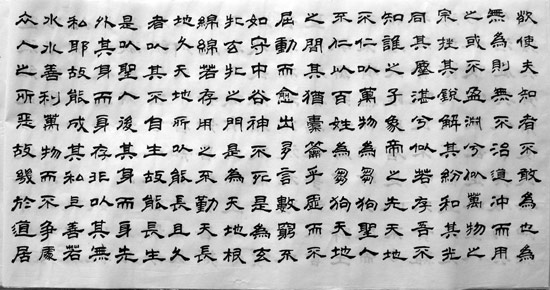 欲使夫知者不敢為也為
無為則無不治道沖而用
之或不盈淵兮似萬物之
宗挫其銳解其紛和其光
同其塵湛兮似若存吾不
知誰之子象而之先天地
不仁以萬物為芻狗聖人
不仁以百姓為芻狗天地
之間其猶橐籥乎虛而不
屈動而愈出多言數窮不
如守中谷神不死是為玄
牝玄牝之門是為天地根
綿綿若存用之不勤天長
地久天地所以能長且久
者以其不自生故能長生
是以聖人後其身而身先
外其身而身存非以其無
私耶故能成其私且善若
水水善利萬物而不爭處
众人之所惡故幾於道居